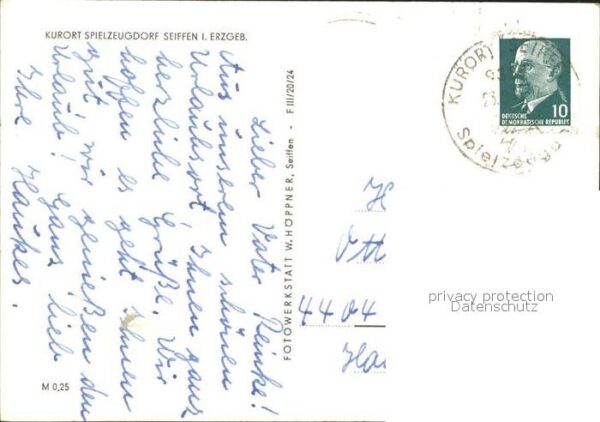 KURORT SPIELZEUGDORF SEIFFEN I. ERZGEB.
Lieber Vater Reinke!
Aus unserem schönen
Urlaubsort, Ihnen ganz
herzliche Grüße. Wir
hoffen es geht Ihnen
gut. Wir genießen den
Urlaub! Ganz lieb
Ihre Haukes.
M 0,25
FOTOWERKSTATT W. HÖPPNER, Seiffen - F III/20/24
KURORT SEIFFEN
Spielzeug
10
DEUTSCHE
DEMOKRATISCHE REPUBLIK
H
Ott
4404
Ha
privacy protection
Datenschutz